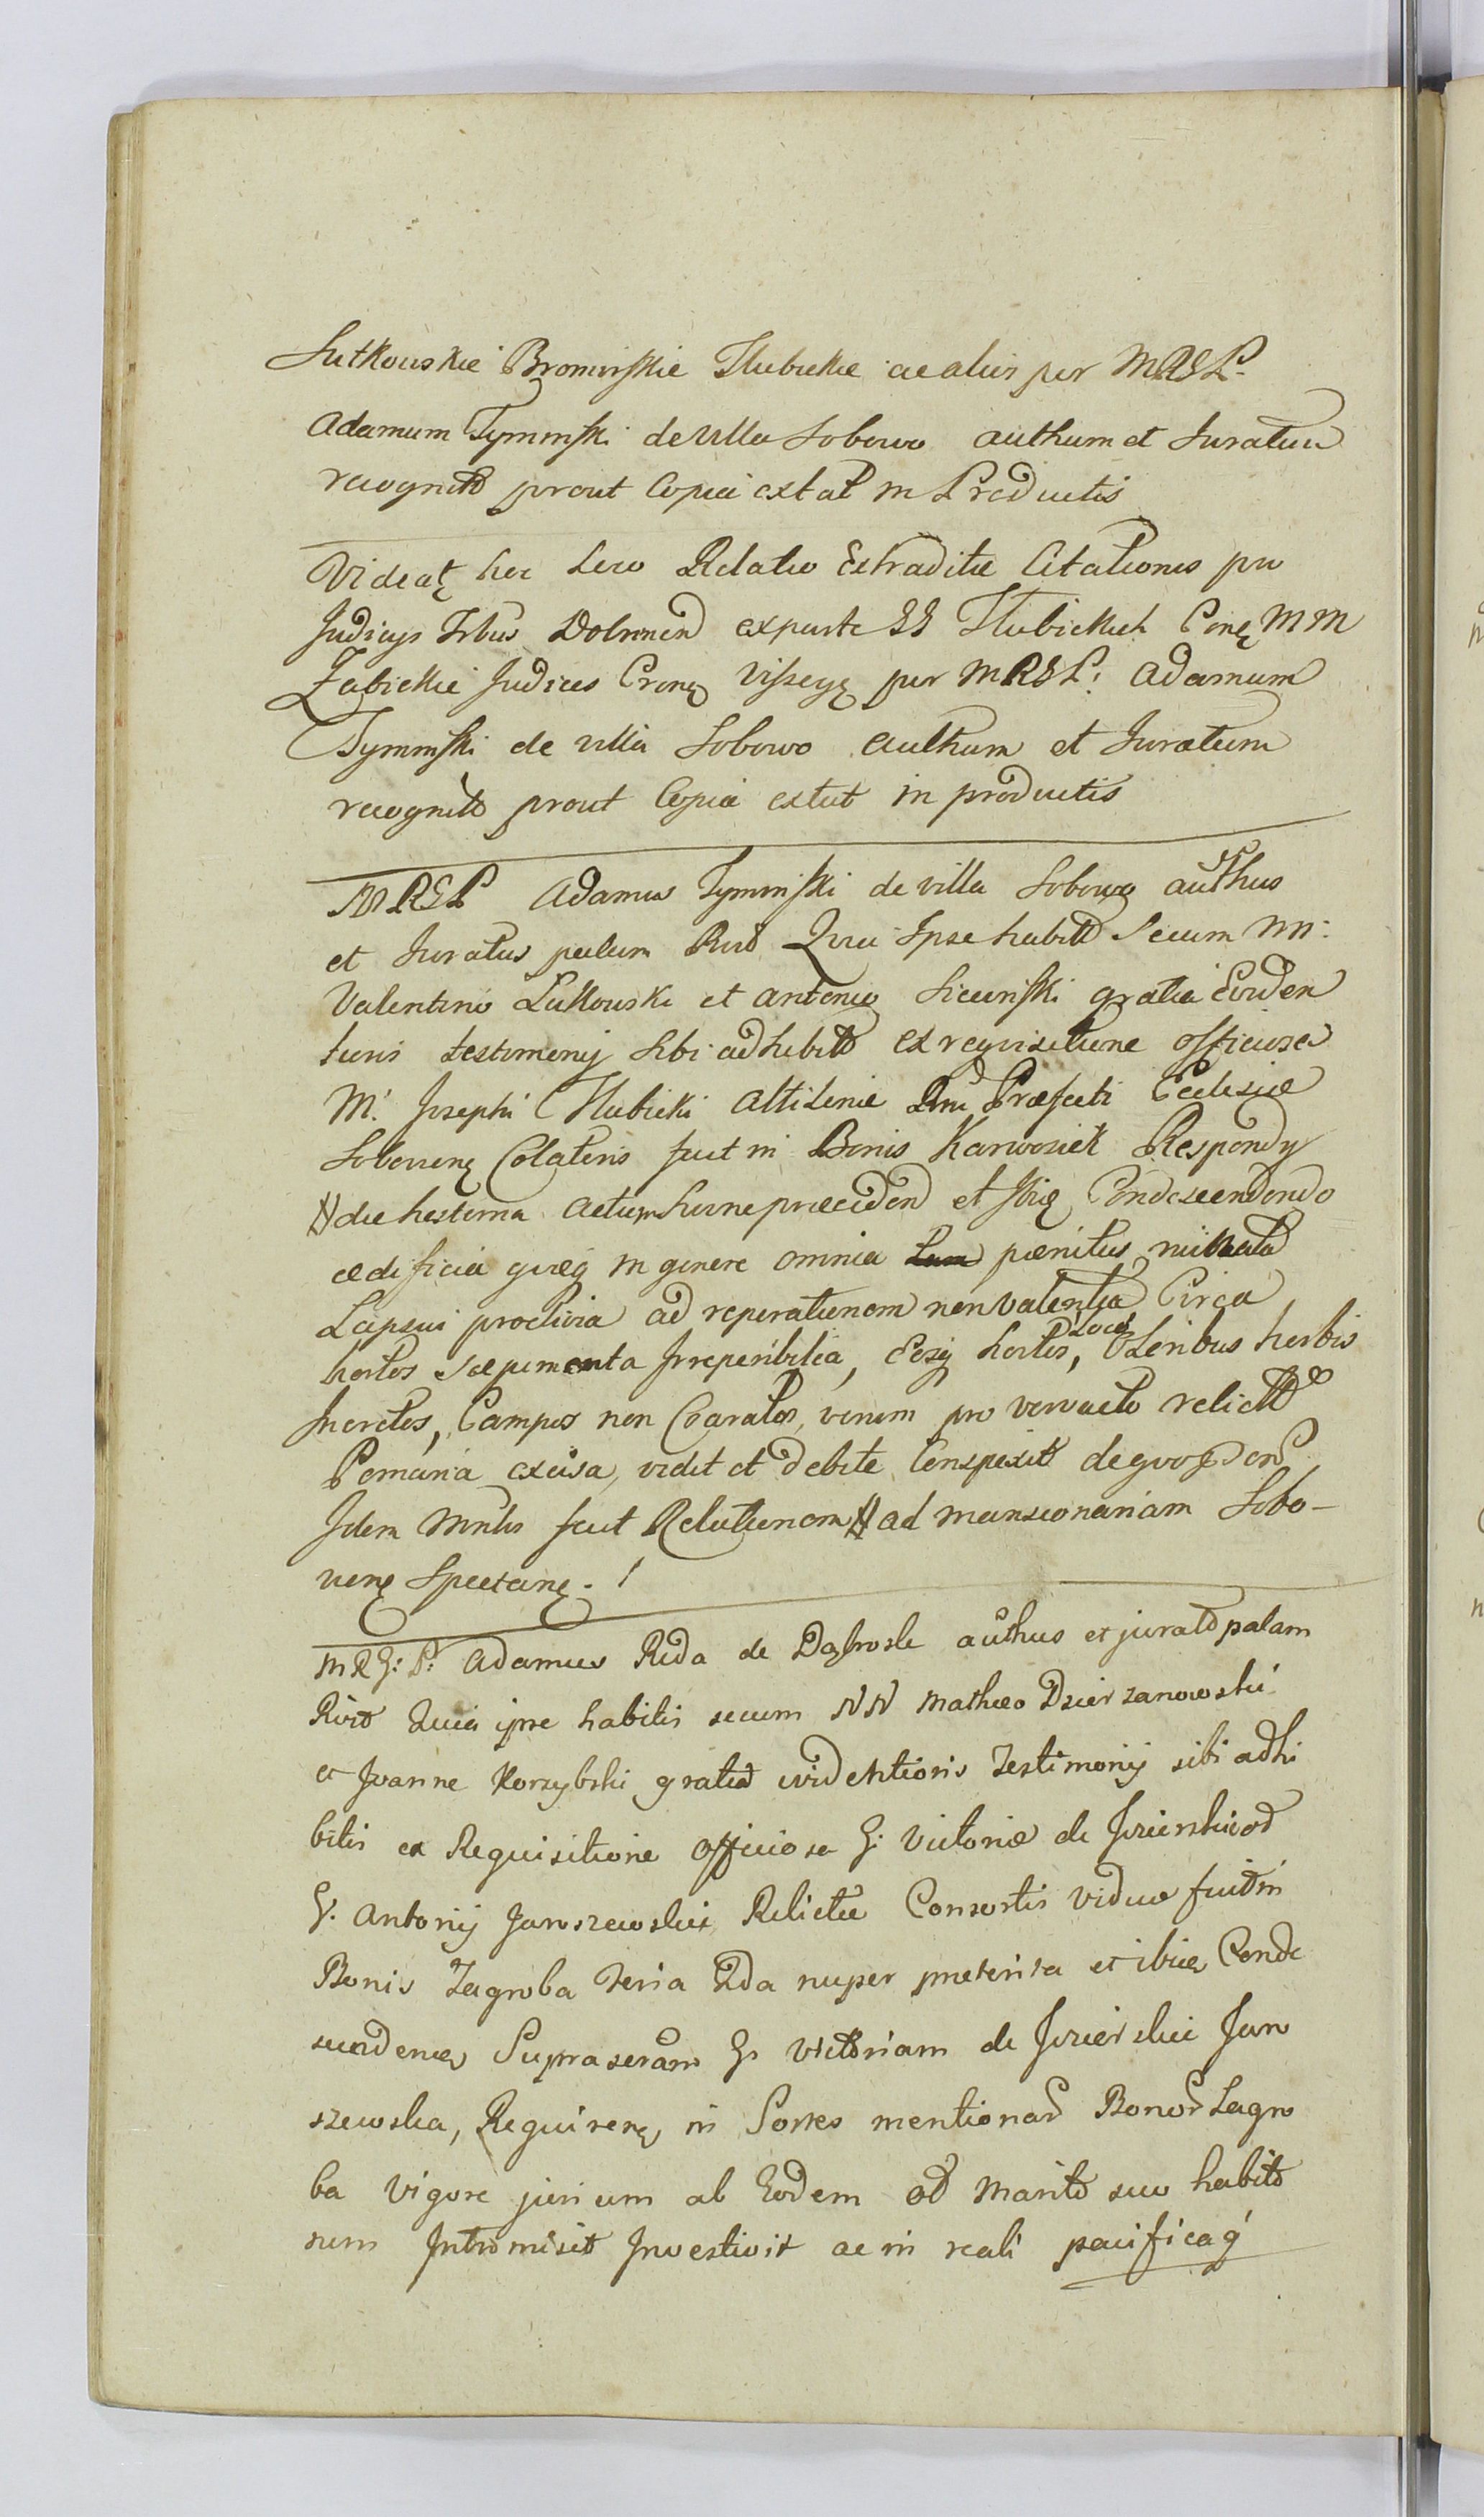 Sutkowskie Bromirskie Hubickie ac aliis per MRGP.
Adamum Tyminski de villa Sobowo authum et Juratum
recognitt prout Copia extat in Productis
Videat hoc Loco Relatio Extraditæ Citationis pro
Judicijs Trbus Dobrinen ex parte GG Hubickich Conę MM
Zabickie Judices Cronę Vissegę per MRGP: Adamum
Tyminski de villa Sobowo authum et Juratum
recognitt prout Copia extat in productis
MRGP Adamus Tyminski de villa Sobowo authus
et Juratus palam Rvit Quia Ipse habitt Secum NN:
Valentino Lutkowski et Antonio Sicinski gratia Eviden
tioris testimonij sibi adhibitt ex requisitione officiosa
M. Josephi Hubicki Præfecti Ecclesiæ
Sobovienę Colatoris fuit in Bonis Karwosiek
# die hesterna et Ibię Condescendendo
ædificia quæq in genere omnia pænitus
Lapsui proclivia ad reperationem non valentia Circa
hortos sæpimenta Irreperibilia, Eosq hortos, Loco Oleribus herbis
Incretos, Campos non Exaratos, verum pro vervacto relictt
Pomaria excisa, vidit et debite Conspexit de quo
Idem Mnlis fecit Relationem # ad mansionariam Sobo-
vienę Spectanę. /
MRG: P: Adamus Reda de Dąbrosk authus et juratt palam
Rvit Quia ipse habitis secum NN Matheo Dzierzanowski
et Joanne Korzybski gratia evidentioris Testimonij sibi adhi
bitis ex Requisitione officiosa G. Victoriæ de Jzierskie od
G. Antonij Jaroszewskie Relictæ Consortis Viduæ fuit in
Bonis Zagroba Feria 2da nuper præterita et ibię Conde
scendenę Suprascram G. Victoriam de Jzierskie Jaro
szewska, Requirenę in Sortes mentionar Bonor Zagro
ba Vigore jurium ab Eodem od Marito suo habito
rum Intromisit Investivit ac in reali pacificaq